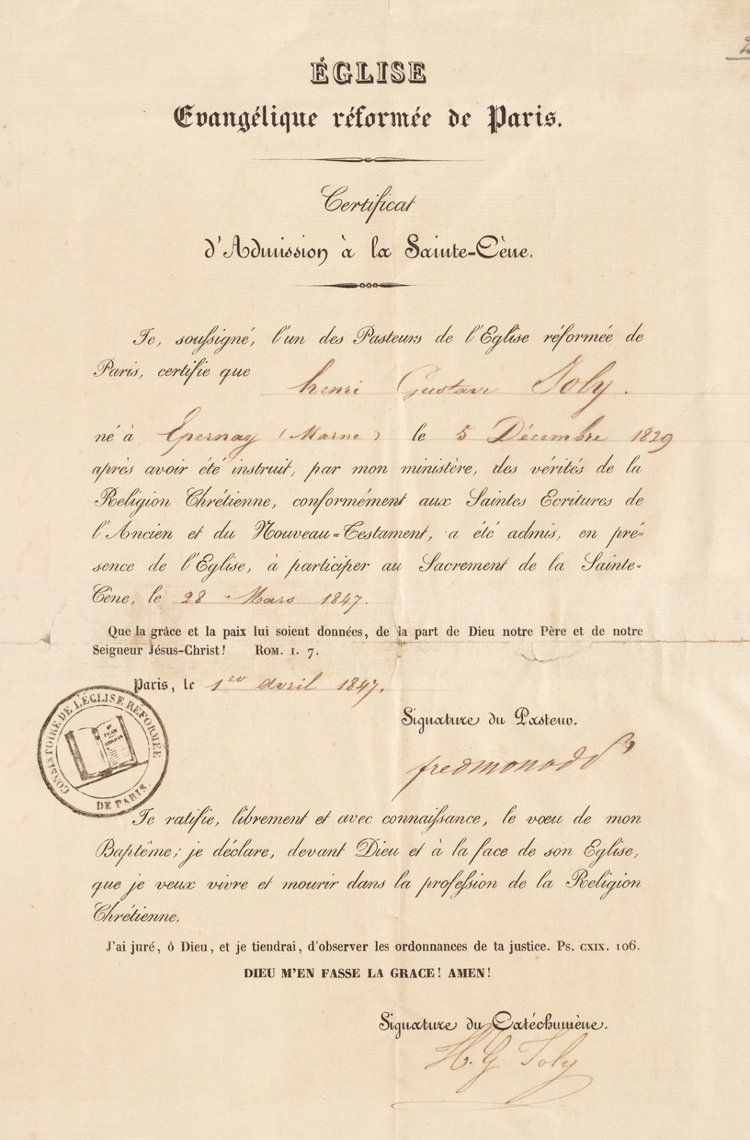 ÉGLISE
Evangélique réformée de Paris.
Certificat
d'Admission à la Sainte-Cène.
Je, soussigné, l'un des Pasteurs de l'Eglise réformée de
Paris, certifie que henri Gustave Joly.
né à Epernay (Marne) le 5 Décembre 1829
après avoir été instruit, par mon ministère, des vérités de la
Religion Chrétienne, conformément aux Saintes Ecritures de
l'Ancien et du Nouveau-Testament, a été admis, en pré-
sence de l'Eglise, à participer au Sacrement de la Sainte-
Cène, le 28 Mars 1847.
Que la grâce et la paix lui soient données, de la part de Dieu notre Père et de notre
Seigneur Jésus-Christ! Rom. I. 7.
Paris, le 1er avril 1847.
CONSISTOIRE DE L'ÉGLISE RÉFORMÉE
DE PARIS
Signature du Pasteur.
fredmonod
Je ratifie, librement et avec connaissance, le vœu de mon
Baptême; je déclare, devant Dieu et à la face de son Eglise,
que je veux vivre et mourir dans la profession de la Religion
Chrétienne.
J'ai juré, ô Dieu, et je tiendrai, d'observer les ordonnances de ta justice. Ps. CXIX. 106.
DIEU M'EN FASSE LA GRACE! AMEN!
Signature du Catéchumène.
H. G. Joly